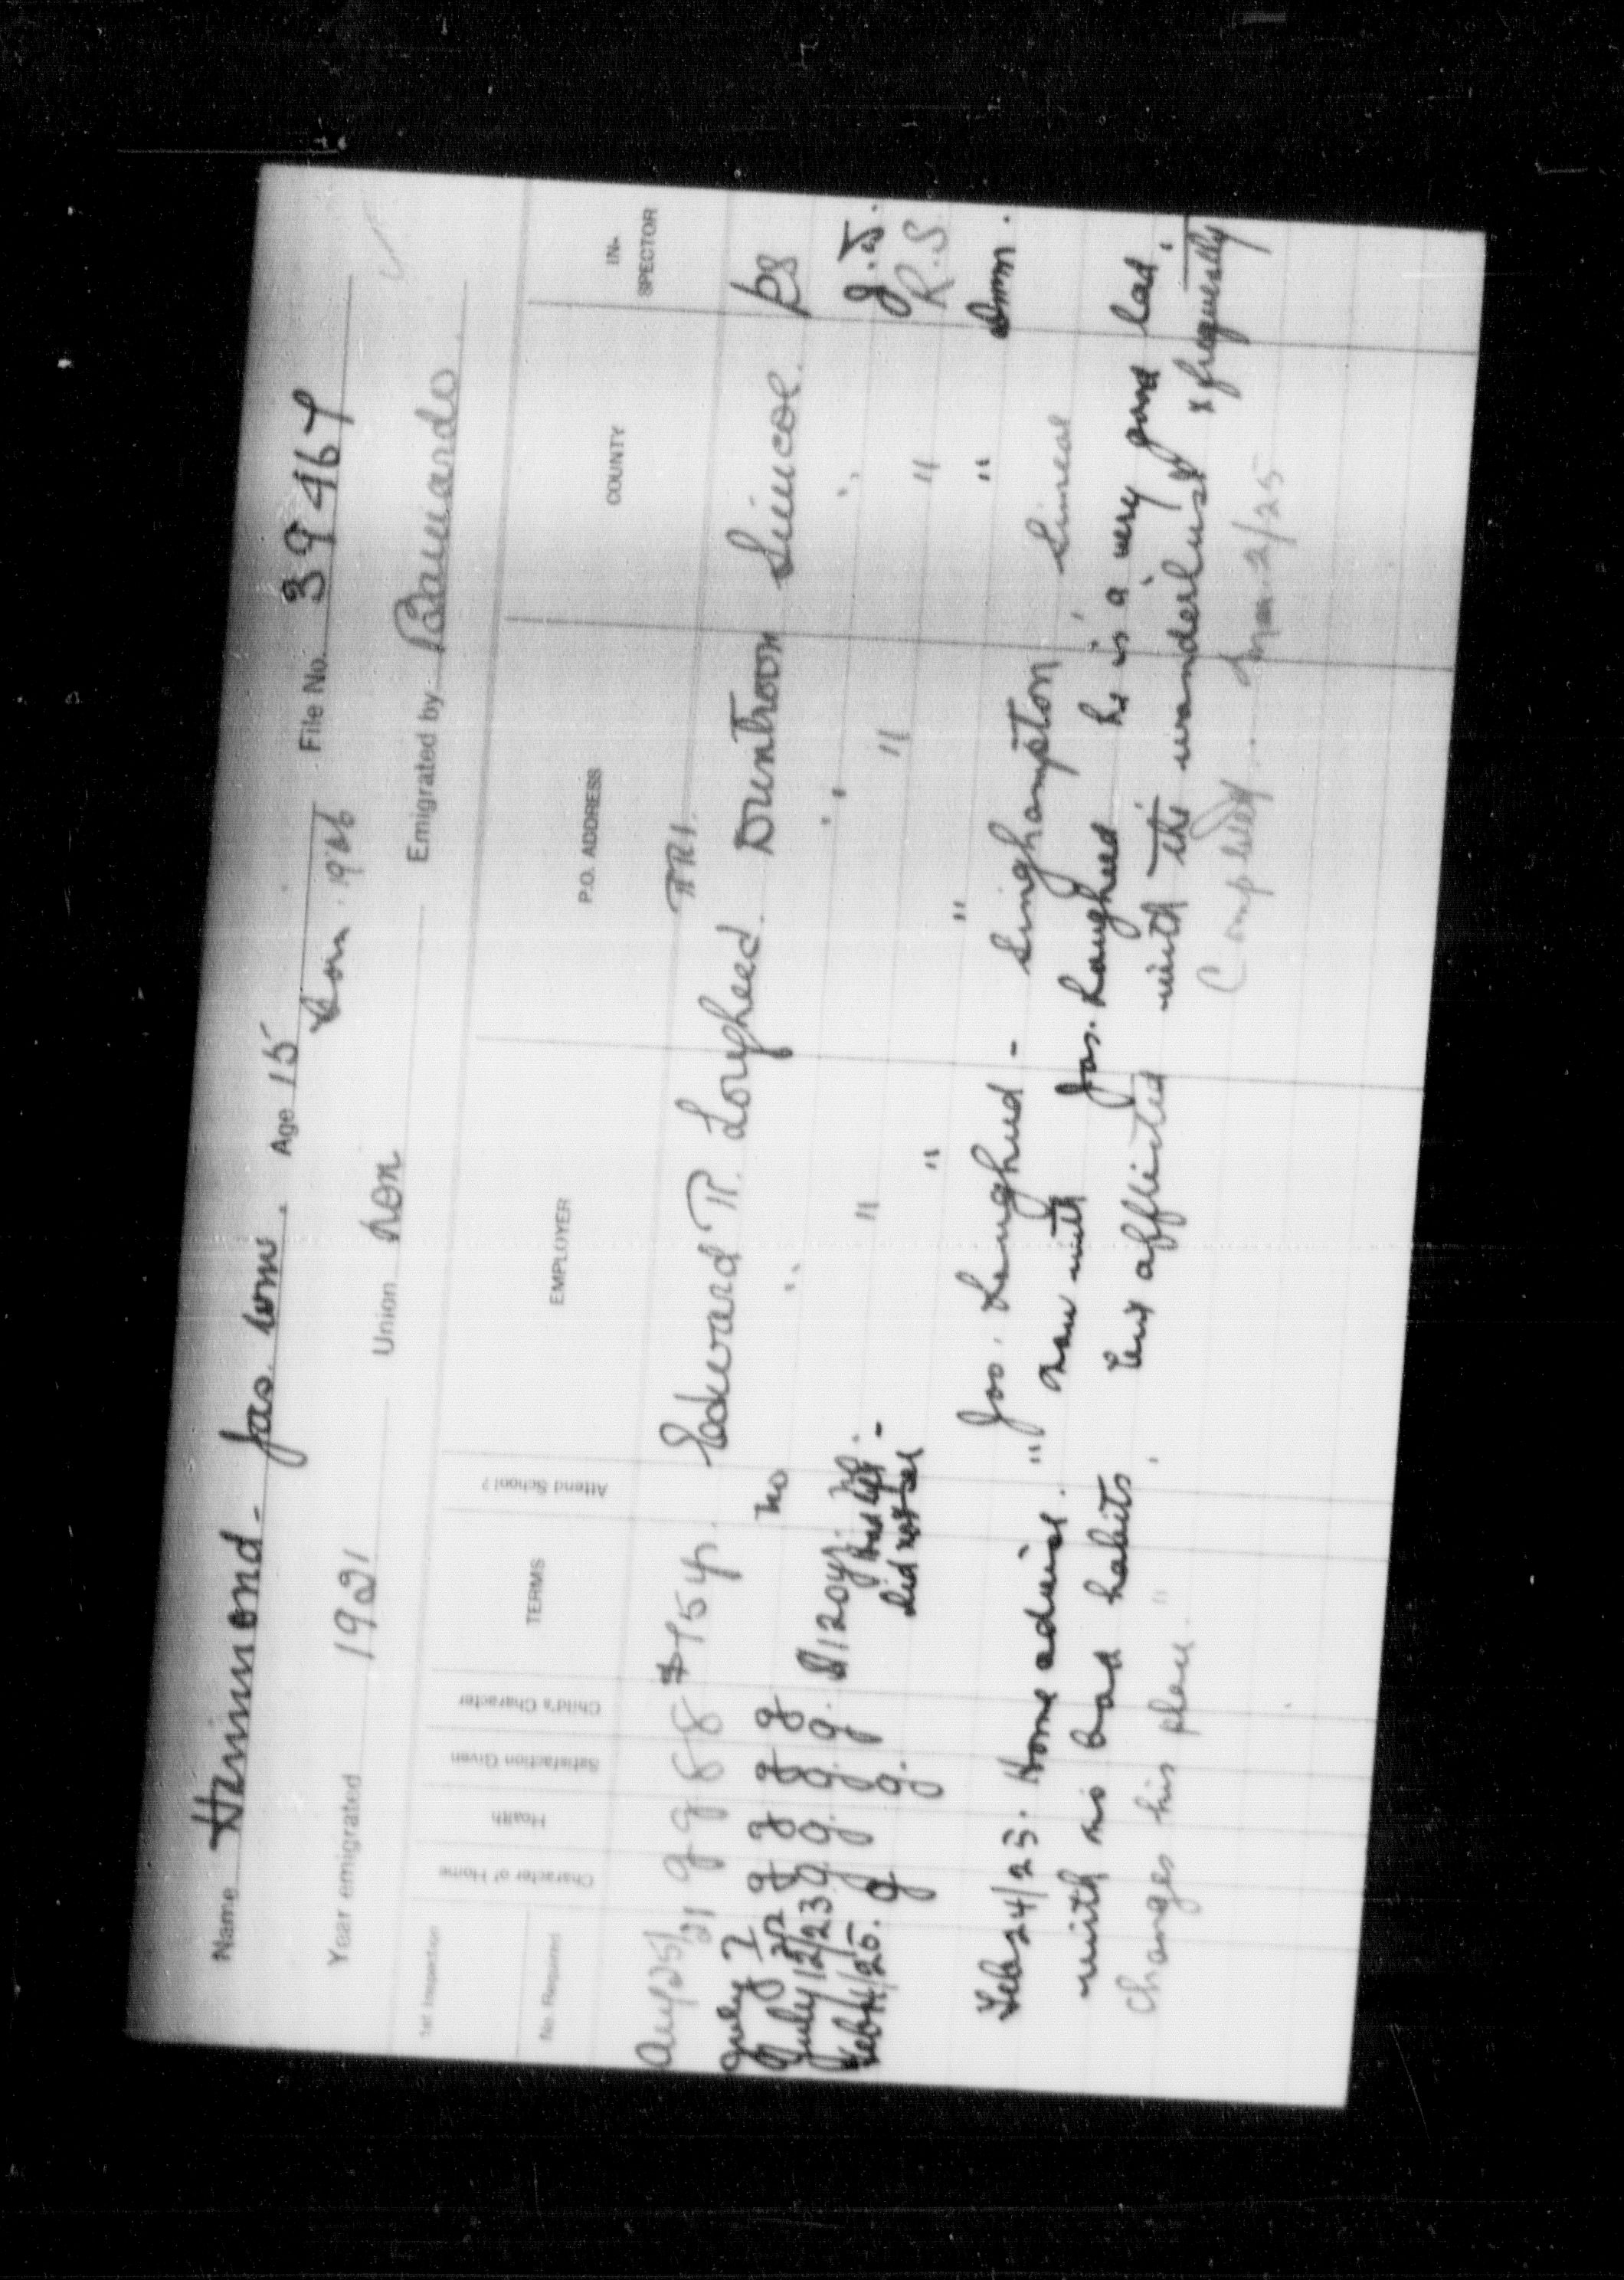 Name Hammond - Jas. Wm. Age 15
Born 1906 File No. 39467
Year emigrated 1921 Union Lon Emigrated by Barnardo
1st Inspection
No. Required Character of Home Health Satisfaction Given Child's Character TERMS Attend School? EMPLOYER P.O. ADDRESS COUNTY IN-SPECTOR
RR1.
Aug 25/21 g g g g $75 yr. Edward R. Lougheed. Duntroon Simcoe.
July 7 22 g g g g no " " "
July 12/23 g. g. g. g. $120 yr. no. " " " R.S
Feb 4/25. g g. had left - did not see " " "
Jos. Lougheed - Singhampton Simcoe
Feb 24/25. Home advise. " now with Jas. Lougheed he is a very good lad.
with no bad habits, but afflicted with the wanderlust & frequently
changes his place." Completed. Mar. 2/25